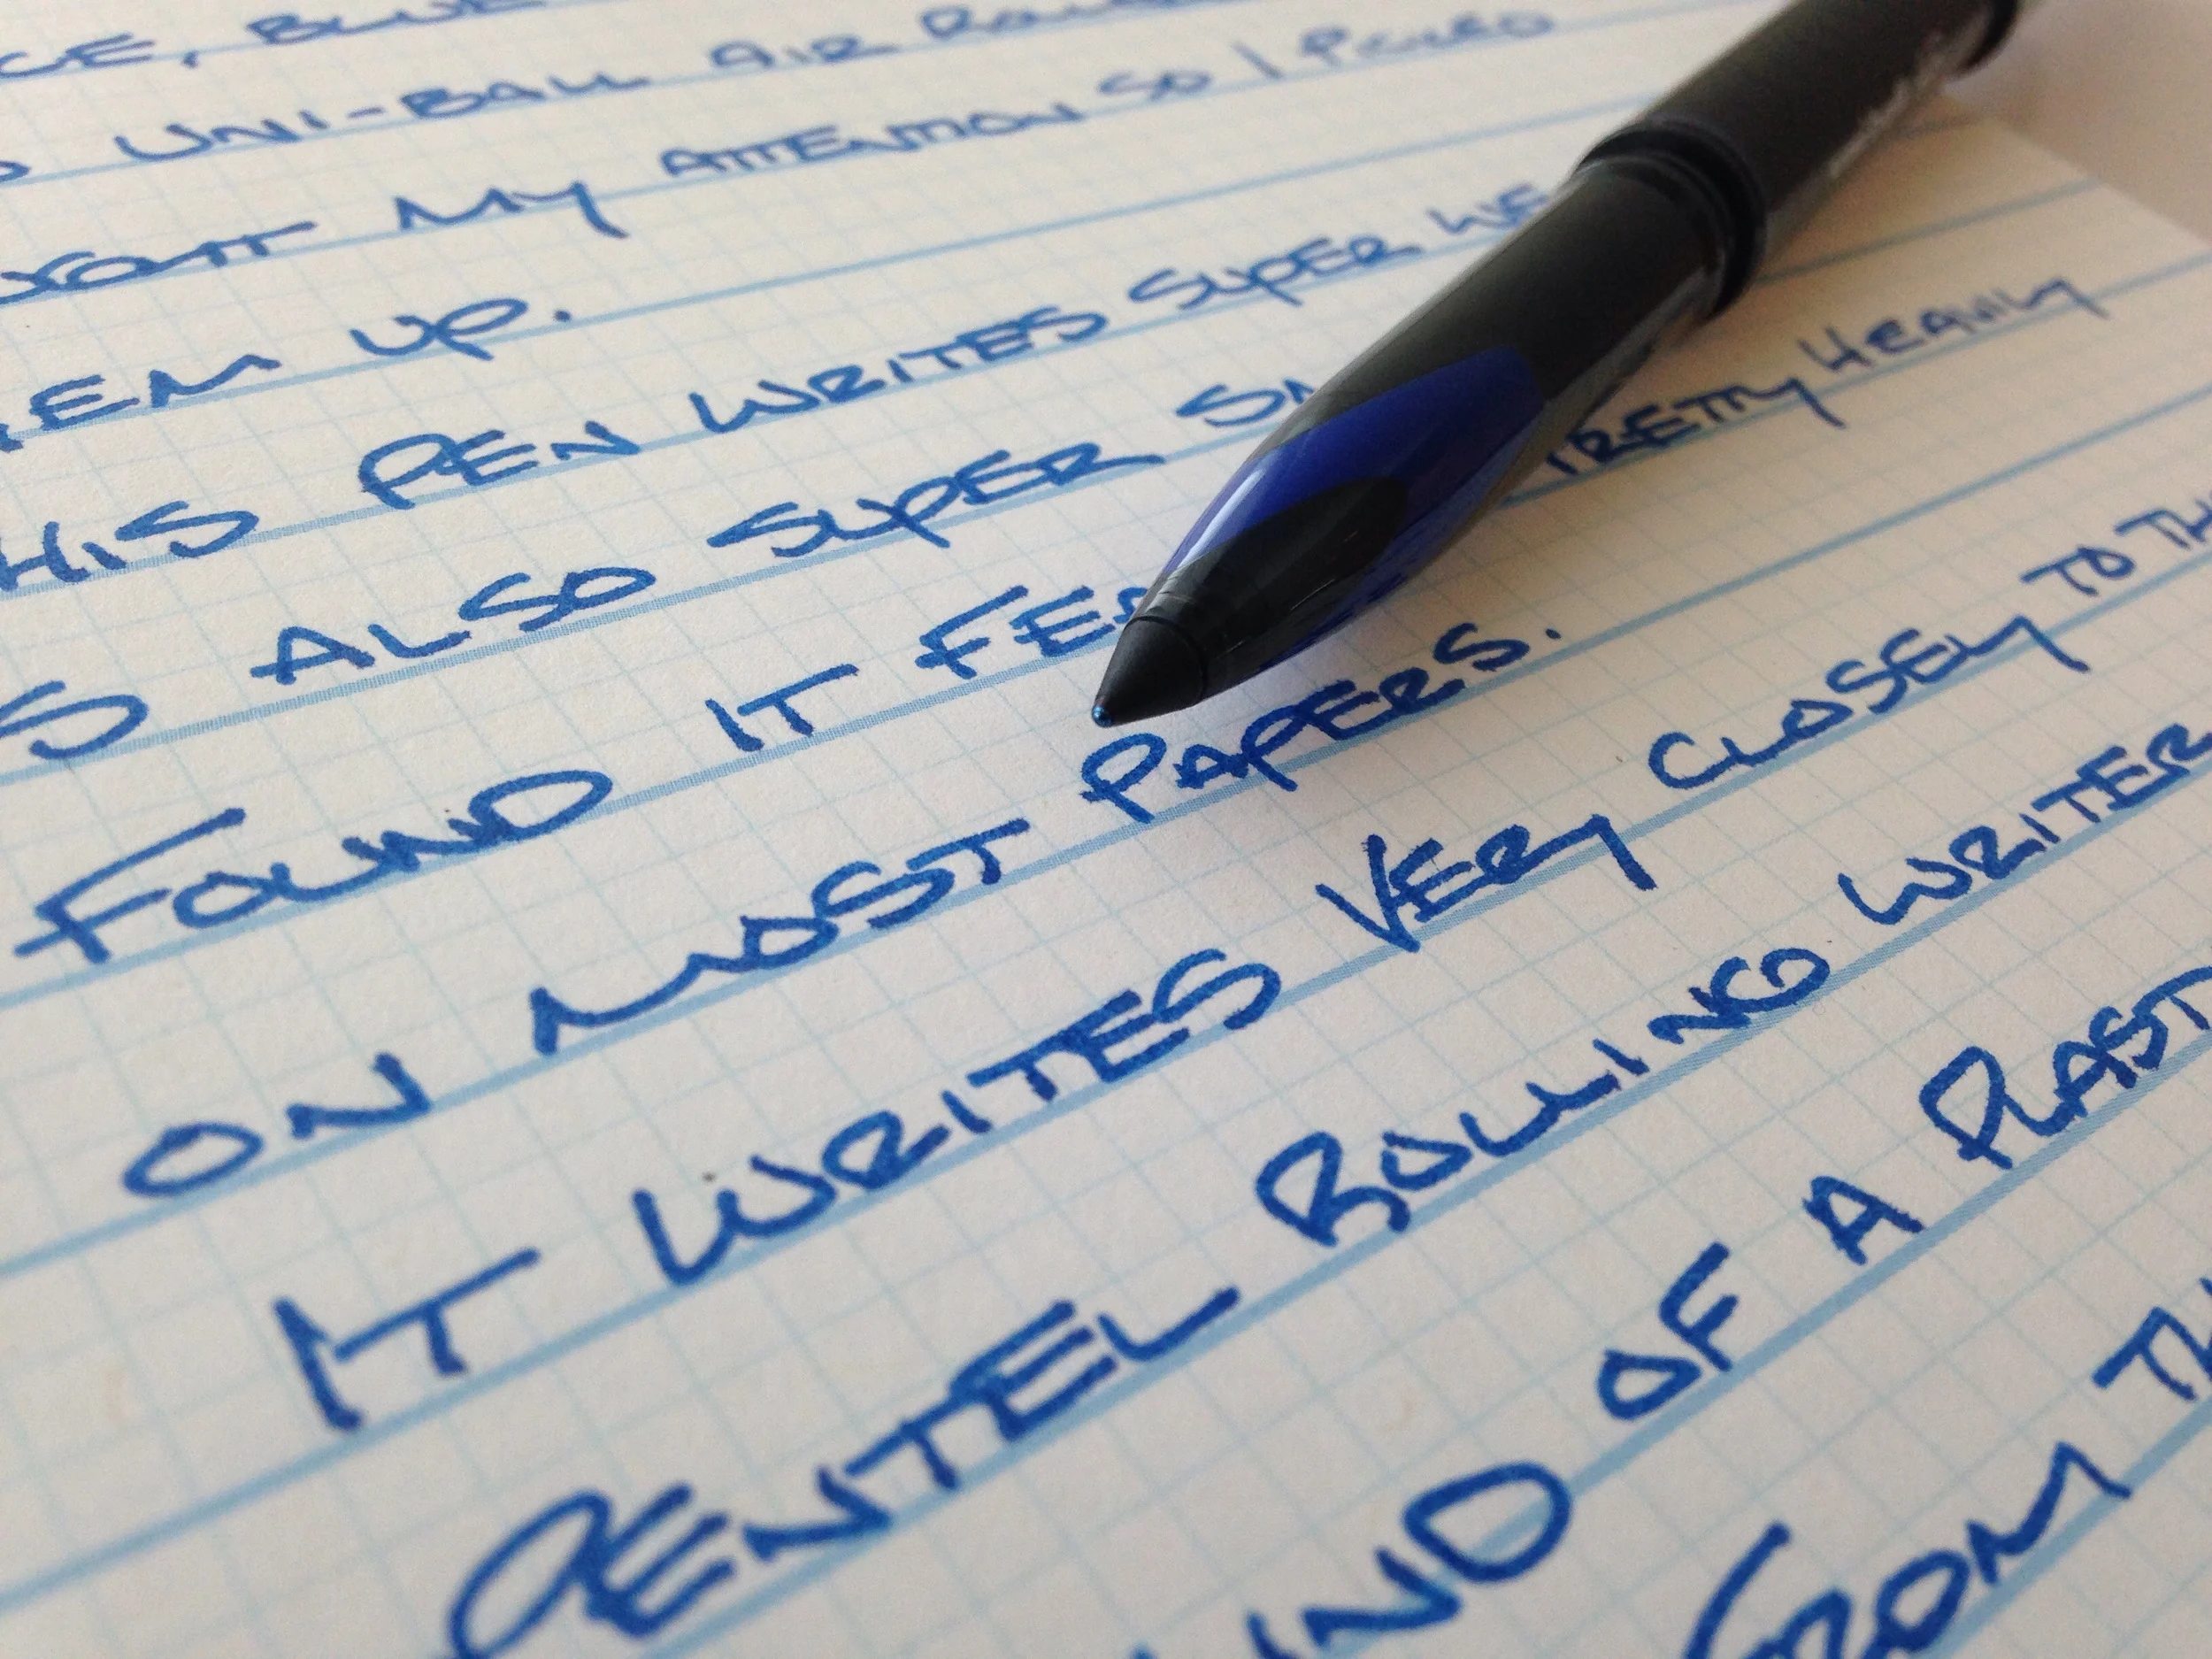 CE, BLUE
UNI-BALL AIR
MY ATTENTION SO I PICKED
UP.
PEN WRITES SUPER WE
S ALSO SUPER
FOUND IT PRETTY HEAVILY
ON MOST PAPERS.
IT WRITES VERY CLOSELY TO TH
PENTEL ROLLING WRITER
IND OF A PLAST
FROM TH